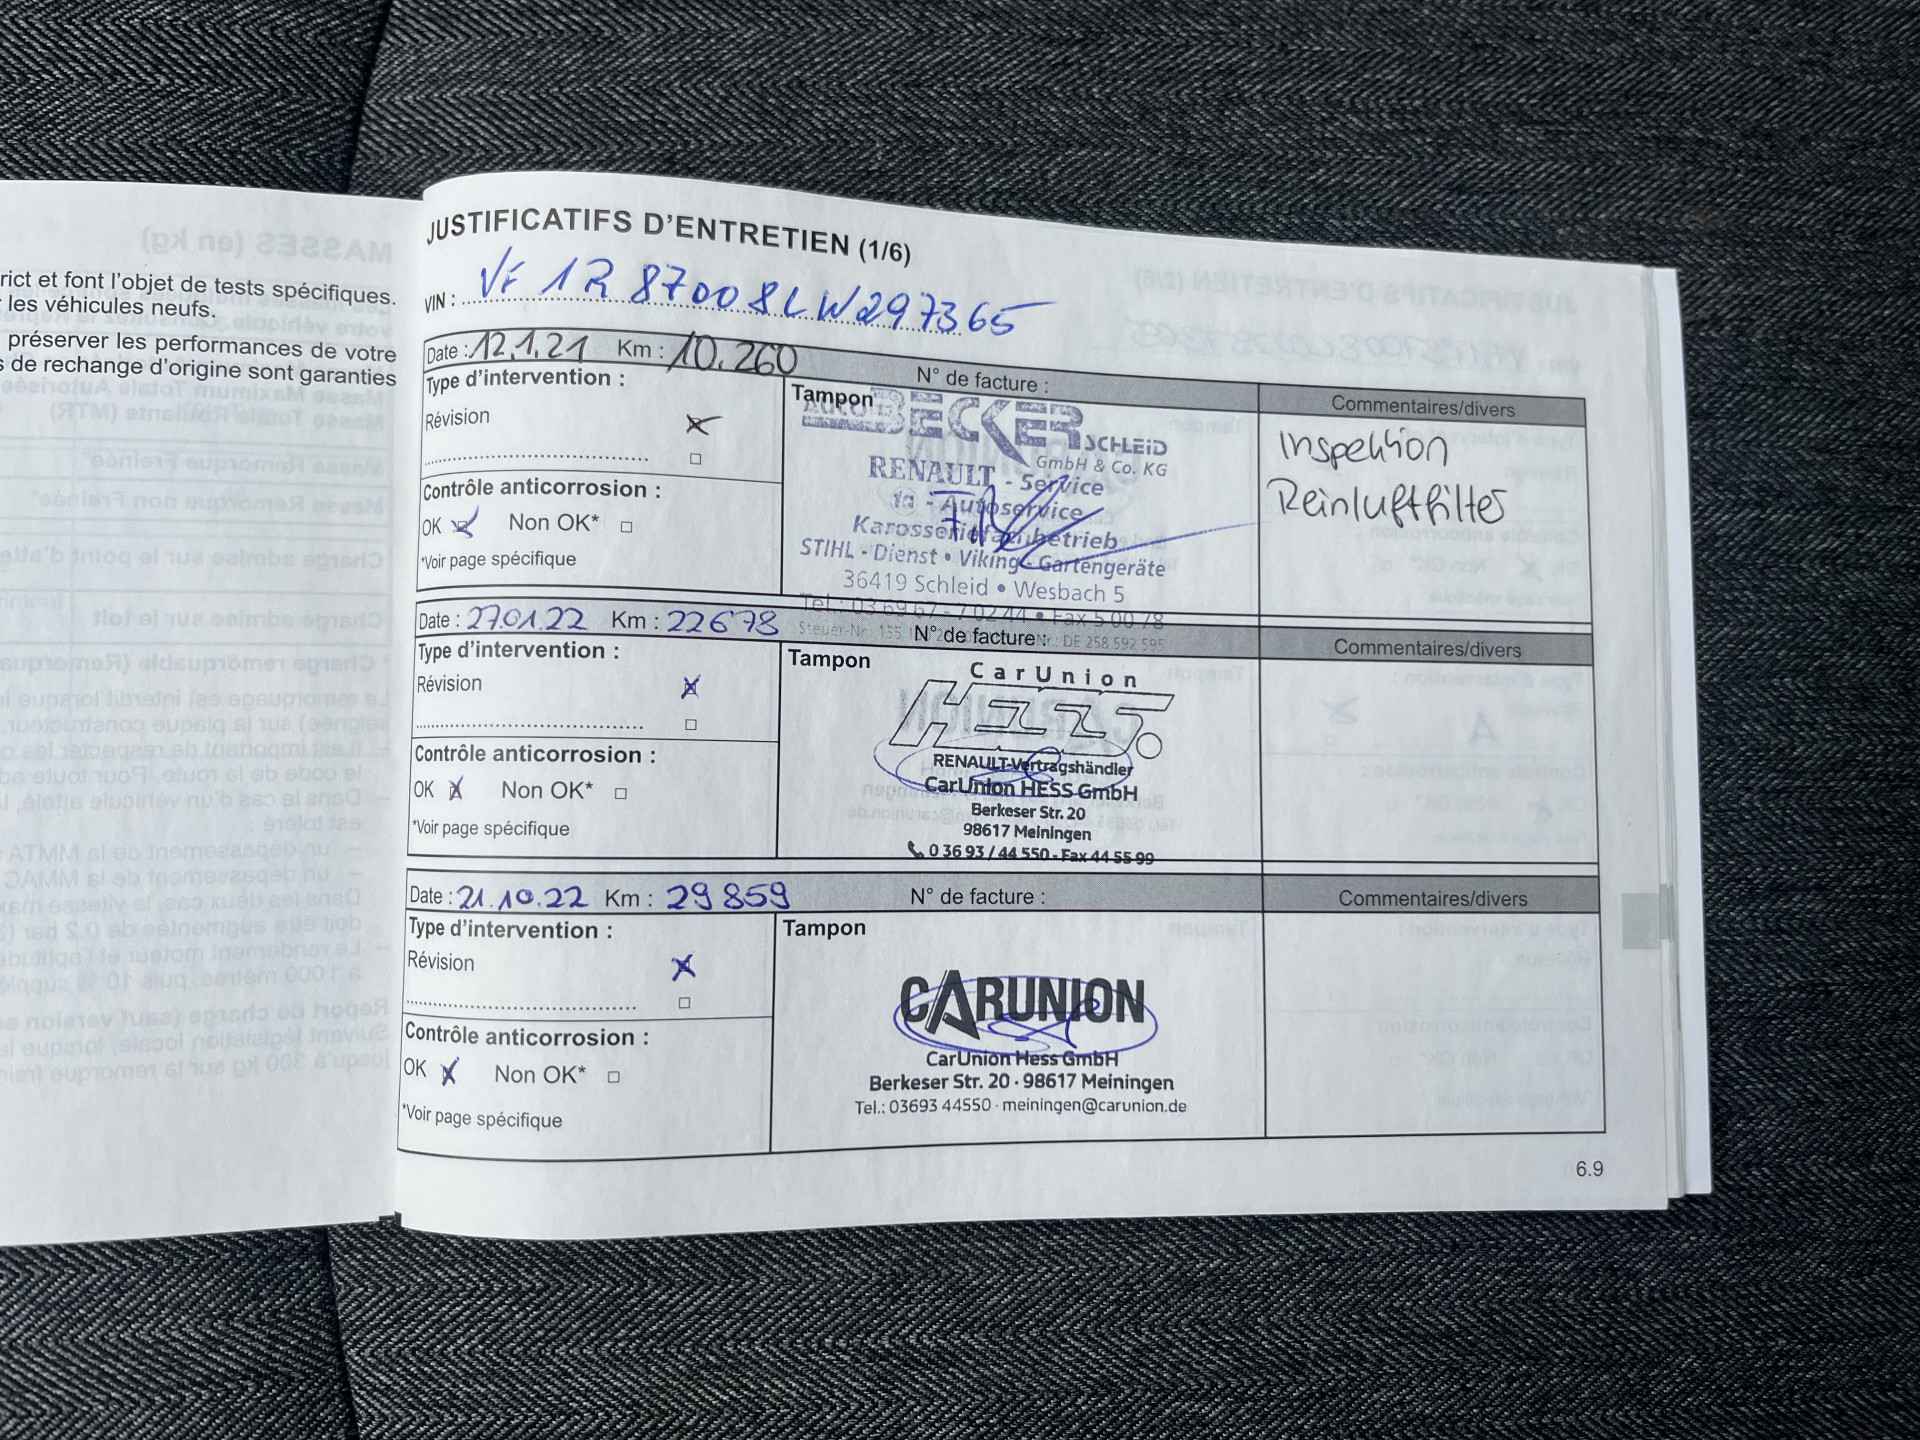 rict et font l'objet de tests spécifiques.
les véhicules neufs.
préserver les performances de votre
de rechange d'origine sont garanties
JUSTIFICATIFS D'ENTRETIEN (1/6)
VIN : VF1R87008LW297365
Date : 12.1.21 Km : 10.260 N° de facture :
Commentaires/divers
Type d'intervention :
Révision
Contrôle anticorrosion :
OK Non OK*
*Voir page spécifique
Tampon
Auto BECKER SCHLEiD
GmbH & Co. KG
RENAULT - Service
1a - Autoservice
Karosseriefachbetrieb
STIHL - Dienst • Viking - Gartengeräte
36419 Schleid • Wesbach 5
Tel.: 03 69 67 - 7 02 44 • Fax 5 00 78
Steuer-Nr.: DE 258 592 595
Inspektion
Reinluftfilter
Date : 27.01.22 Km : 22678 N° de facture :
Commentaires/divers
Type d'intervention :
Révision
Contrôle anticorrosion :
OK Non OK*
*Voir page spécifique
Tampon
CarUnion
Hess.
RENAULT-Vertragshändler
CarUnion HESS GmbH
Berkeser Str. 20
98617 Meiningen
0 36 93 / 44 550 - Fax 44 55 99
Date : 21.10.22 Km : 29859 N° de facture :
Commentaires/divers
Type d'intervention :
Révision
Contrôle anticorrosion :
OK Non OK*
*Voir page spécifique
Tampon
CARUNION
CarUnion Hess GmbH
Berkeser Str. 20 · 98617 Meiningen
Tel.: 03693 44550 · meiningen@carunion.de
6.9